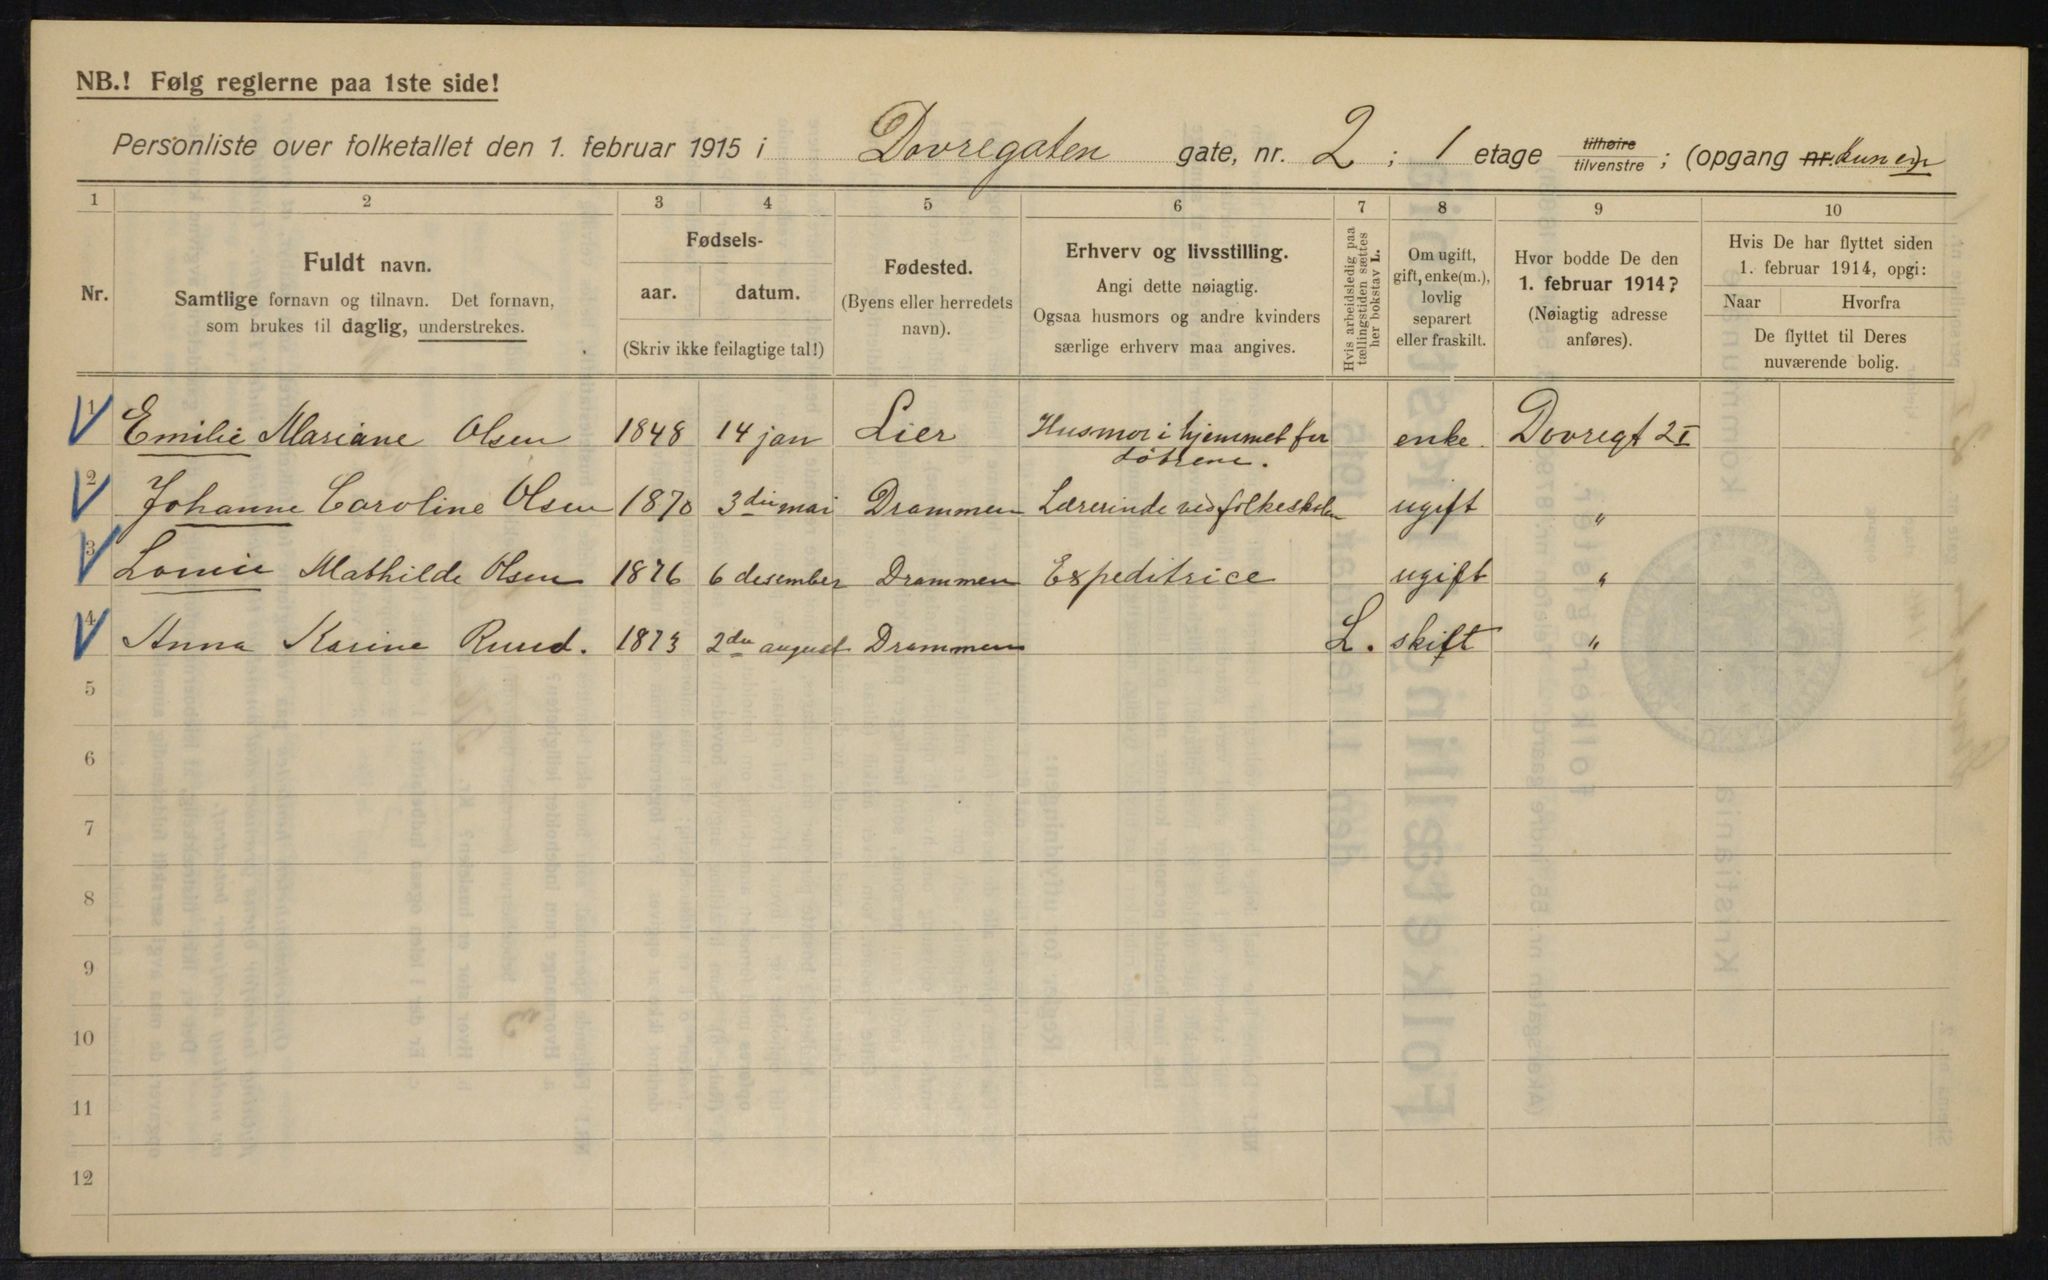 NB.! Følg reglerne paa 1ste side!
Personliste over folketallet den 1. februar 1915 i Dovregaten gate, nr. 2; 1 etage tilhøire tilvenstre; (opgang nr. kun en)
1 2 3 4 5 6 7 8 9 10
Nr.
Fuldt navn.
Samtlige fornavn og tilnavn. Det fornavn,
som brukes til daglig, understrekes.
Fødsels-
aar. datum.
(Skriv ikke feilagtige tal!)
Fødested.
(Byens eller herredets
navn).
Erhverv og livsstilling.
Angi dette nøiagtig.
Ogsaa husmors og andre kvinders
særlige erhverv maa angives.
Hvis arbeidsledig paa
tællingstiden sættes
her bokstav L.
Om ugift,
gift, enke(m.),
lovlig
separert
eller fraskilt.
Hvor bodde De den
1. februar 1914?
(Nøiagtig adresse
anføres).
Hvis De har flyttet siden
1. februar 1914, opgi:
Naar Hvorfra
De flyttet til Deres
nuværende bolig.
1 Emilie Mariane Olsen 1848 14 jan Lier Husmor i hjemmet for enke. Dovregt 2 I
døtrene.
2 Johanne Caroline Olsen 1870 3die mai Drammen Lærerinde ved folkeskolen ugift "
3 Louise Mathilde Olsen 1876 6 desember Drammen Expeditrice ugift "
4 Anna Karine Ruud. 1873 2de august Drammen L. skilt "
5
6
7
8
9
10
11
12